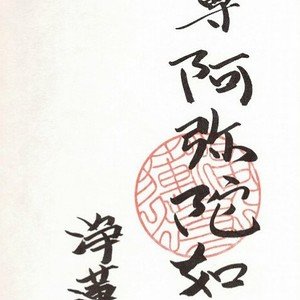 尊阿弥陀如
浄蓮